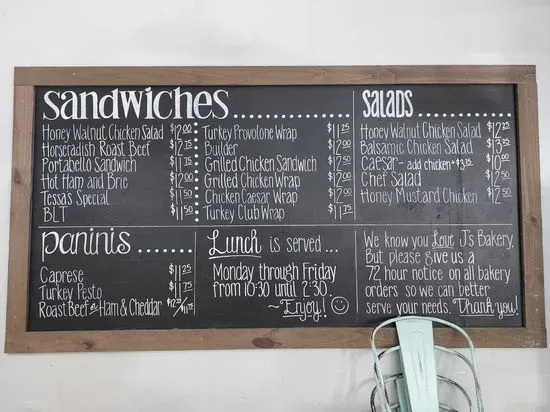 Sandwiches
Honey Walnut Chicken Salad $12.00
Horseradish Roast Beef $12.75
Portabello Sandwich $11.75
Hot Ham and Brie $12.00
Tessa's Special $11.50
BLT $11.50
Turkey Provolone Wrap $11.25
Builder $12.00
Grilled Chicken Sandwich $12.50
Grilled Chicken Wrap $12.00
Chicken Caesar Wrap $12.00
Turkey Club Wrap $11.75
Salads
Honey Walnut Chicken Salad $12.25
Balsamic Chicken Salad $13.75
Caesar - add chicken + $3.75 $10.00
Chef Salad $12.50
Honey Mustard Chicken $12.50
Paninis
Caprese $11.25
Turkey Pesto $11.75
Roast Beef or Ham & Cheddar
Lunch is served...
Monday through Friday
from 10:30 until 2:30.
~Enjoy!
We know you Love J's Bakery,
But please give us a
72 hour notice on all bakery
orders so we can better
serve your needs. Thank you!